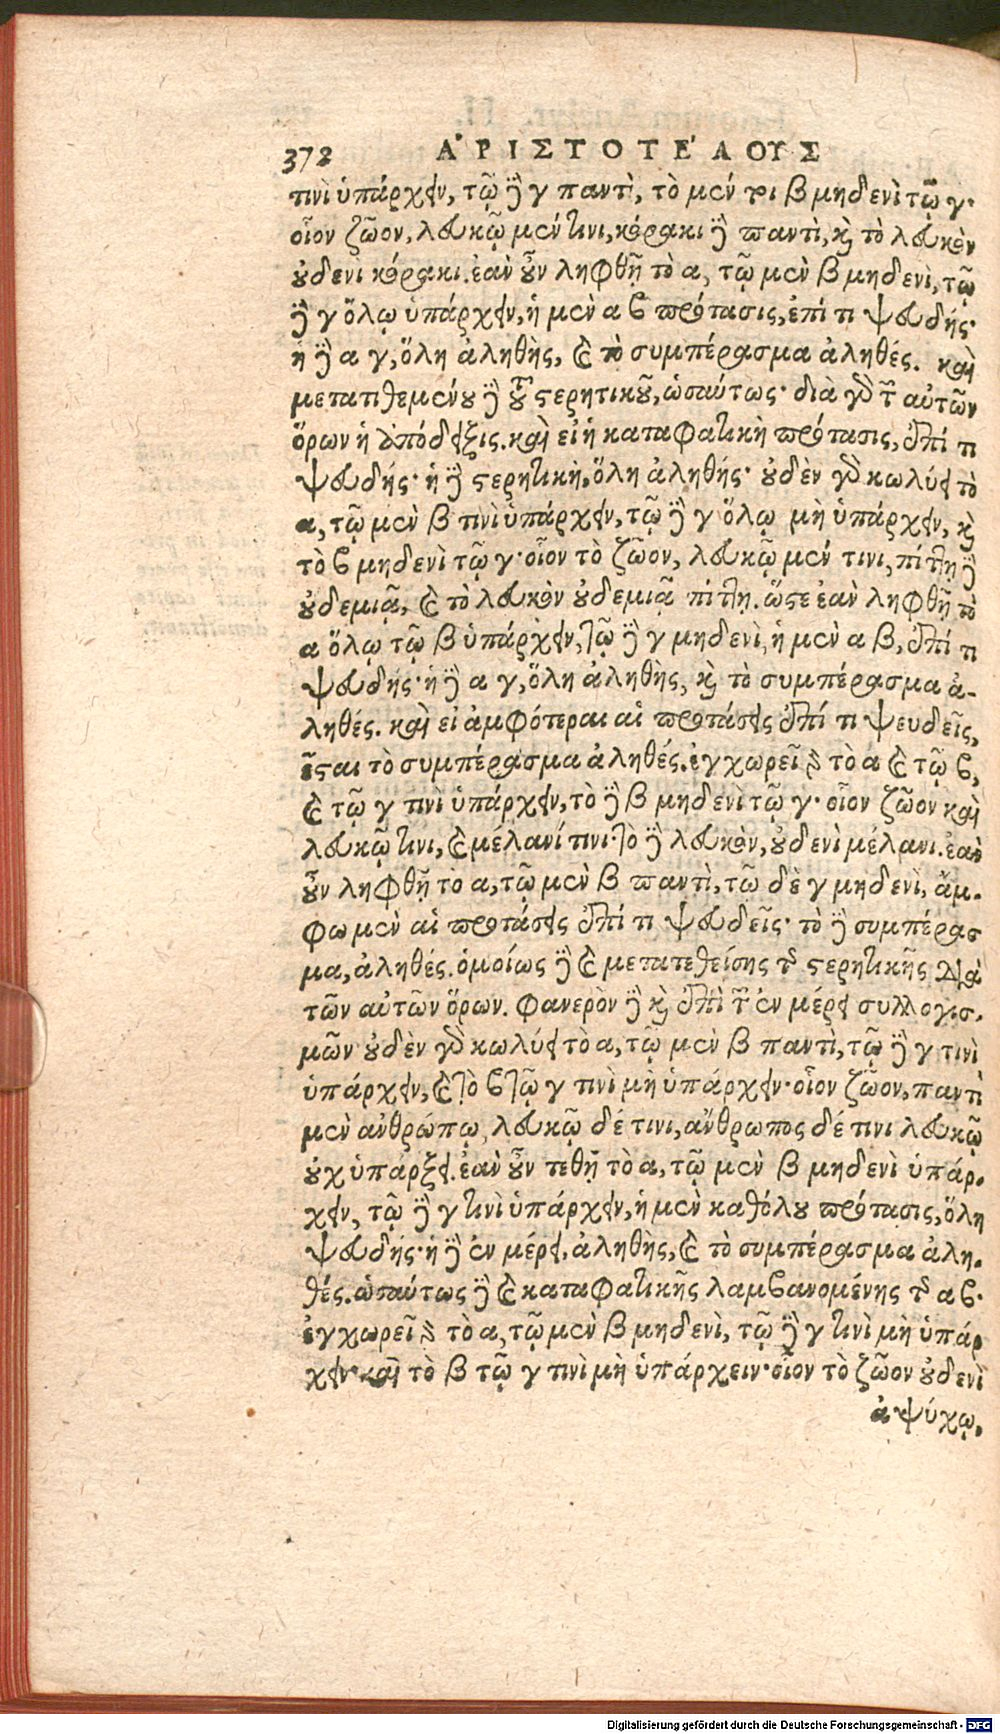 372 ΑΡΙΣΤΟΤΕΛΟΥΣ
τινὶ ὑπάρχειν, τῷ δὲ γ παντὶ, τὸ μέν τοι β μηδενὶ τῷ γ·
οἷον ζῶον, λευκῷ μέν τινι, κόρακι δὲ παντὶ, καὶ τὸ λευκὸν
οὐδενὶ κόρακι. ἐὰν οὖν ληφθῇ τὸ α, τῷ μὲν β μηδενὶ, τῷ
δὲ γ ὅλῳ ὑπάρχειν, ἡ μὲν α β πρότασις, ἐπί τι ψευδής·
ἡ δὲ α γ, ὅλη ἀληθὴς, καὶ τὸ συμπέρασμα ἀληθές. καὶ
μετατιθεμένου δὲ τοῦ στερητικοῦ, ὡσαύτως· διὰ γὰρ τῶν αὐτῶν
ὅρων ἡ ἀπόδειξις. καὶ εἰ ἡ καταφατικὴ πρότασις, ἐπί τι
ψευδής· ἡ δὲ στερητικὴ, ὅλη ἀληθής· οὐδὲν γὰρ κωλύει τὸ
α, τῷ μὲν β τινὶ ὑπάρχειν, τῷ δὲ γ ὅλῳ μὴ ὑπάρχειν, καὶ
τὸ β μηδενὶ τῷ γ· οἷον τὸ ζῶον, λευκῷ μέν τινι, πίττῃ δὲ
οὐδεμιᾷ, καὶ τὸ λευκὸν οὐδεμιᾷ πίττῃ. ὥστε ἐὰν ληφθῇ τὸ
α ὅλῳ τῷ β ὑπάρχειν, τῷ δὲ γ μηδενὶ, ἡ μὲν α β, ἐπί τι
ψευδής· ἡ δὲ α γ, ὅλη ἀληθὴς, καὶ τὸ συμπέρασμα ἀ-
ληθές. καὶ εἰ ἀμφότεραι αἱ προτάσεις ἐπί τι ψευδεῖς,
ἔσται τὸ συμπέρασμα ἀληθές. ἐγχωρεῖ γὰρ τὸ α καὶ τῷ β,
καὶ τῷ γ τινὶ ὑπάρχειν, τὸ δὲ β μηδενὶ τῷ γ· οἷον ζῶον καὶ
λευκῷ τινι, καὶ μέλανί τινι· τὸ δὲ λευκὸν, οὐδενὶ μέλανι. ἐὰν
οὖν ληφθῇ τὸ α, τῷ μὲν β παντὶ, τῷ δὲ γ μηδενὶ, ἄμ-
φω μὲν αἱ προτάσεις ἐπί τι ψευδεῖς· τὸ δὲ συμπέρασ
μα, ἀληθές. ὁμοίως δὲ καὶ μετατεθείσης τῆς στερητικῆς διὰ
τῶν αὐτῶν ὅρων. φανερὸν δὲ καὶ ἐπὶ τῶν ἐν μέρει συλλογισ-
μῶν οὐδὲν γὰρ κωλύει τὸ α, τῷ μὲν β παντὶ, τῷ δὲ γ τινὶ
ὑπάρχειν, καὶ τὸ β τῷ γ τινὶ μὴ ὑπάρχειν· οἷον ζῶον, παντὶ
μὲν ἀνθρώπῳ, λευκῷ δέ τινι, ἄνθρωπος δέ τινι λευκῷ
οὐχ ὑπάρξει. ἐὰν οὖν τεθῇ τὸ α, τῷ μὲν β μηδενὶ ὑπάρ-
χειν, τῷ δὲ γ τινὶ ὑπάρχειν, ἡ μὲν καθόλου πρότασις, ὅλη
ψευδής· ἡ δὲ ἐν μέρει, ἀληθὴς, καὶ τὸ συμπέρασμα ἀλη-
θές. ὡσαύτως δὲ καὶ καταφατικῆς λαμβανομένης τῆς α β·
ἐγχωρεῖ γὰρ τὸ α, τῷ μὲν β μηδενὶ, τῷ δὲ γ τινὶ μὴ ὑπάρ
χειν· καὶ τὸ β τῷ γ τινὶ μὴ ὑπάρχειν· οἷον τὸ ζῶον οὐδενὶ
ἀψύχῳ,
Digitalisierung gefördert durch die Deutsche Forschungsgemeinschaft - DFG